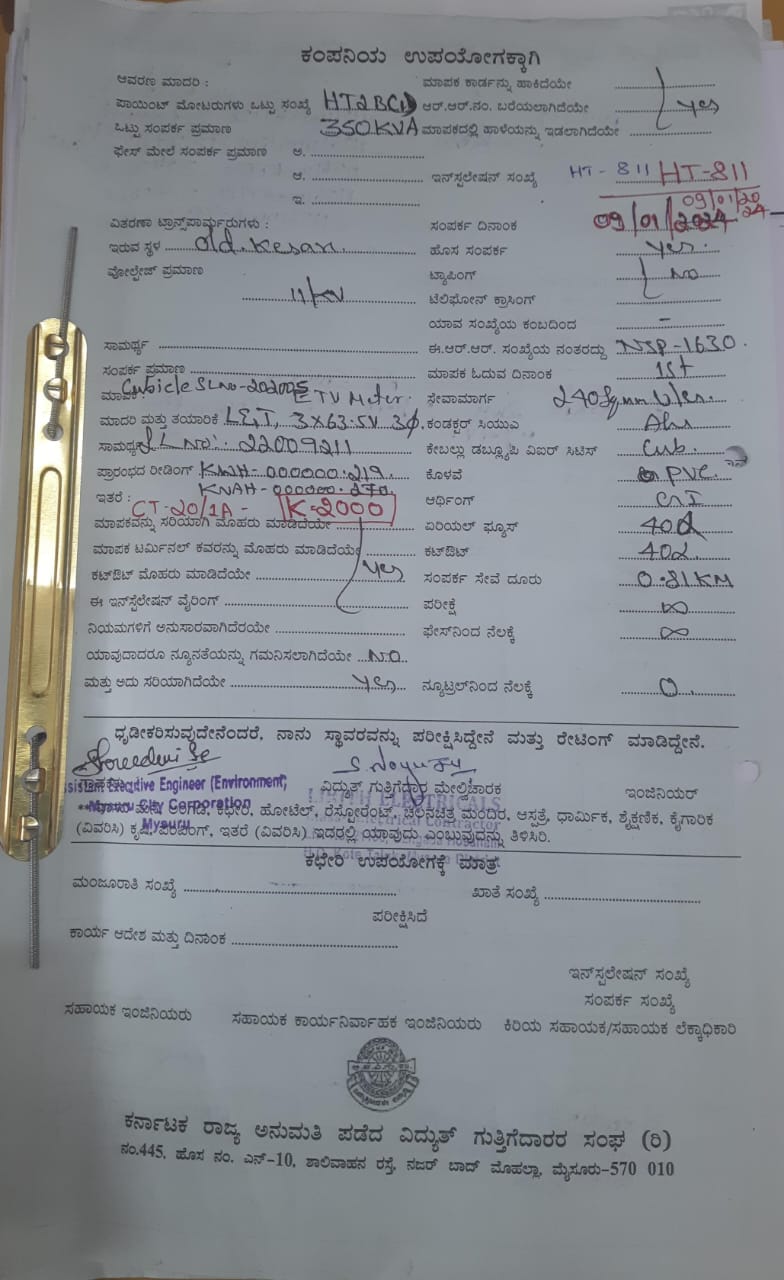 ಕಂಪನಿಯ ಉಪಯೋಗಕ್ಕಾಗಿ
ಆವರಣ ಮಾದರಿ : ಮಾಪಕ ಕಾರ್ಡನ್ನು ಹಾಕಿದೆಯೇ
ಪಾಯಿಂಟ್ ಮೋಟರುಗಳು ಒಟ್ಟು ಸಂಖ್ಯೆ HT2BC(1) ಆರ್.ಆರ್.ನಂ. ಬರೆಯಲಾಗಿದೆಯೇ Yes
ಒಟ್ಟು ಸಂಪರ್ಕ ಪ್ರಮಾಣ 350KVA ಮಾಪಕದಲ್ಲಿ ಹಾಳೆಯನ್ನು ಇಡಲಾಗಿದೆಯೇ
ಫೇಸ್ ಮೇಲೆ ಸಂಪರ್ಕ ಪ್ರಮಾಣ ಅ.
ಆ. ಇನ್‌ಸ್ಪಲೇಷನ್ ಸಂಖ್ಯೆ HT-811 HT-811
ಇ. 09/01/2024
ವಿತರಣಾ ಟ್ರಾನ್ಸ್‌ಪಾರ್ಮರುಗಳು : ಸಂಪರ್ಕ ದಿನಾಂಕ 09/01/2024
ಇರುವ ಸ್ಥಳ old.Kesare ಹೊಸ ಸಂಪರ್ಕ Yes.
ವೋಲ್ಟೇಜ್ ಪ್ರಮಾಣ ಟ್ಯಾಪಿಂಗ್ NO
11KV ಟೆಲಿಫೋನ್ ಕ್ರಾಸಿಂಗ್
ಯಾವ ಸಂಖ್ಯೆಯ ಕಂಬದಿಂದ -
ಸಾಮರ್ಥ್ಯ ಈ.ಆರ್.ಆರ್. ಸಂಖ್ಯೆಯ ನಂತರದ್ದು NJP-1630.
ಸಂಪರ್ಕ ಪ್ರಮಾಣ ಮಾಪಕ ಓದುವ ದಿನಾಂಕ 1st
ಮಾಪಕ Cubicle SL no-202005 ETV Meter. ಸೇವಾಮಾರ್ಗ 240Sqmm
ಮಾದರಿ ಮತ್ತು ತಯಾರಿಕೆ L&T, 3X63.5V 3Ø. ಕಂಡಕ್ಟರ್ ಸಿಯುಎ
ಸಾಮರ್ಥ್ಯ SL NO:- 22009211 ಕೇಬಲ್ಲು ಡಬ್ಲ್ಯೂಪಿ ವಿಐರ್ ಸಿಟಿಸ್ Cub.
ಪ್ರಾರಂಭದ ರೀಡಿಂಗ್ KWH-000000.219. ಕೊಳವೆ PVC.
ಇತರೆ : KVAH-000000.270. ಆರ್ಥಿಂಗ್ CI
CT-20/1A - K-2000
ಮಾಪಕವನ್ನು ಸರಿಯಾಗಿ ಮೊಹರು ಮಾಡಿದೆಯೇ ಏರಿಯಲ್ ಫ್ಯೂಸ್ 40
ಮಾಪಕ ಟರ್ಮಿನಲ್ ಕವರನ್ನು ಮೊಹರು ಮಾಡಿದೆಯೇ ಕಟ್‌ಔಟ್ 40
ಕಟ್‌ಔಟ್ ಮೊಹರು ಮಾಡಿದೆಯೇ Yes ಸಂಪರ್ಕ ಸೇವೆ ದೂರು 0.81KM
ಈ ಇನ್‌ಸ್ಟೆಲೇಷನ್ ವೈರಿಂಗ್ ಪರೀಕ್ಷೆ ∞
ನಿಯಮಗಳಿಗೆ ಅನುಸಾರವಾಗಿದೆರಯೇ ಫೇಸ್‌ನಿಂದ ನೆಲಕ್ಕೆ ∞
ಯಾವುದಾದರೂ ನ್ಯೂನತೆಯನ್ನು ಗಮನಿಸಲಾಗಿದೆಯೇ NO
ಮತ್ತು ಅದು ಸರಿಯಾಗಿದೆಯೇ Yes ನ್ಯೂಟ್ರಲ್‌ನಿಂದ ನೆಲಕ್ಕೆ 0.
ಧೃಡೀಕರಿಸುವುದೇನೆಂದರೆ, ನಾನು ಸ್ಥಾವರವನ್ನು ಪರೀಕ್ಷಿಸಿದ್ದೇನೆ ಮತ್ತು ರೇಟಿಂಗ್ ಮಾಡಿದ್ದೇನೆ.
ವಿದ್ಯುತ್ ಗುತ್ತಿಗೆದಾರ ಮೇಲ್ವಿಚಾರಕ ಇಂಜಿನಿಯರ್
Assistant Executive Engineer (Environment)
Mysuru City Corporation
Mysuru
ELECTRICALS
Electrical Contractor
ಕಛೇರಿ, ಹೋಟೆಲ್, ರೆಸ್ಟೋರೆಂಟ್, ಚಲನಚಿತ್ರ ಮಂದಿರ, ಆಸ್ಪತ್ರೆ, ಧಾರ್ಮಿಕ, ಶೈಕ್ಷಣಿಕ, ಕೈಗಾರಿಕ
(ವಿವರಿಸಿ) ಕೃಷಿ, ಪಂಪಿಂಗ್, ಇತರೆ (ವಿವರಿಸಿ) ಇದರಲ್ಲಿ ಯಾವುದು ಎಂಬುವುದನ್ನು ತಿಳಿಸಿರಿ.
ಕಛೇರಿ ಉಪಯೋಗಕ್ಕೆ ಮಾತ್ರ
ಮಂಜೂರಾತಿ ಸಂಖ್ಯೆ ಖಾತೆ ಸಂಖ್ಯೆ
ಪರೀಕ್ಷಿಸಿದೆ
ಕಾರ್ಯ ಆದೇಶ ಮತ್ತು ದಿನಾಂಕ
ಇನ್‌ಸ್ಪಲೇಷನ್ ಸಂಖ್ಯೆ
ಸಂಪರ್ಕ ಸಂಖ್ಯೆ
ಸಹಾಯಕ ಇಂಜಿನಿಯರು ಸಹಾಯಕ ಕಾರ್ಯನಿರ್ವಾಹಕ ಇಂಜಿನಿಯರು ಕಿರಿಯ ಸಹಾಯಕ/ಸಹಾಯಕ ಲೆಕ್ಕಾಧಿಕಾರಿ
ಕರ್ನಾಟಕ ರಾಜ್ಯ ಅನುಮತಿ ಪಡೆದ ವಿದ್ಯುತ್ ಗುತ್ತಿಗೆದಾರರ ಸಂಘ (ರಿ)
ನಂ.445, ಹೊಸ ನಂ. ಎನ್-10, ಶಾಲಿವಾಹನ ರಸ್ತೆ, ನಜರ್ ಬಾದ್ ಮೊಹಲ್ಲಾ, ಮೈಸೂರು-570 010